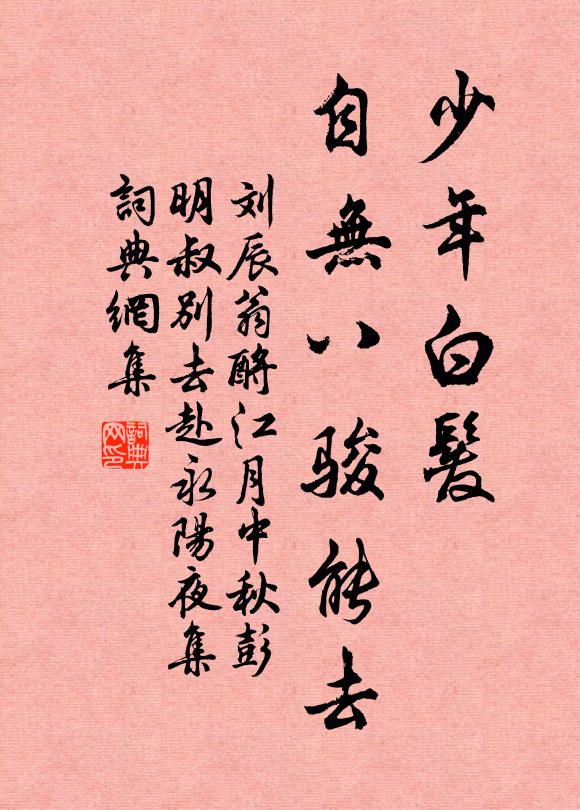 少年白髮
自無八骏能去
刘辰翁酹江月中秋彭
明叔别去赴永陽夜集
詞典網集
詞典网印